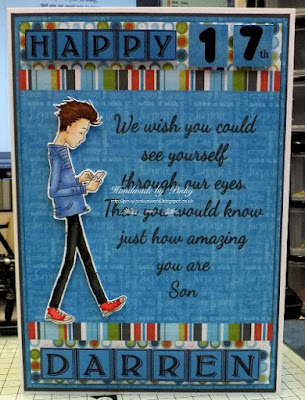 HAPPY 17th
We wish you could
see yourself
through our eyes.
Then you would know
just how amazing
you are
Son
Handmade by Pinky
DARREN